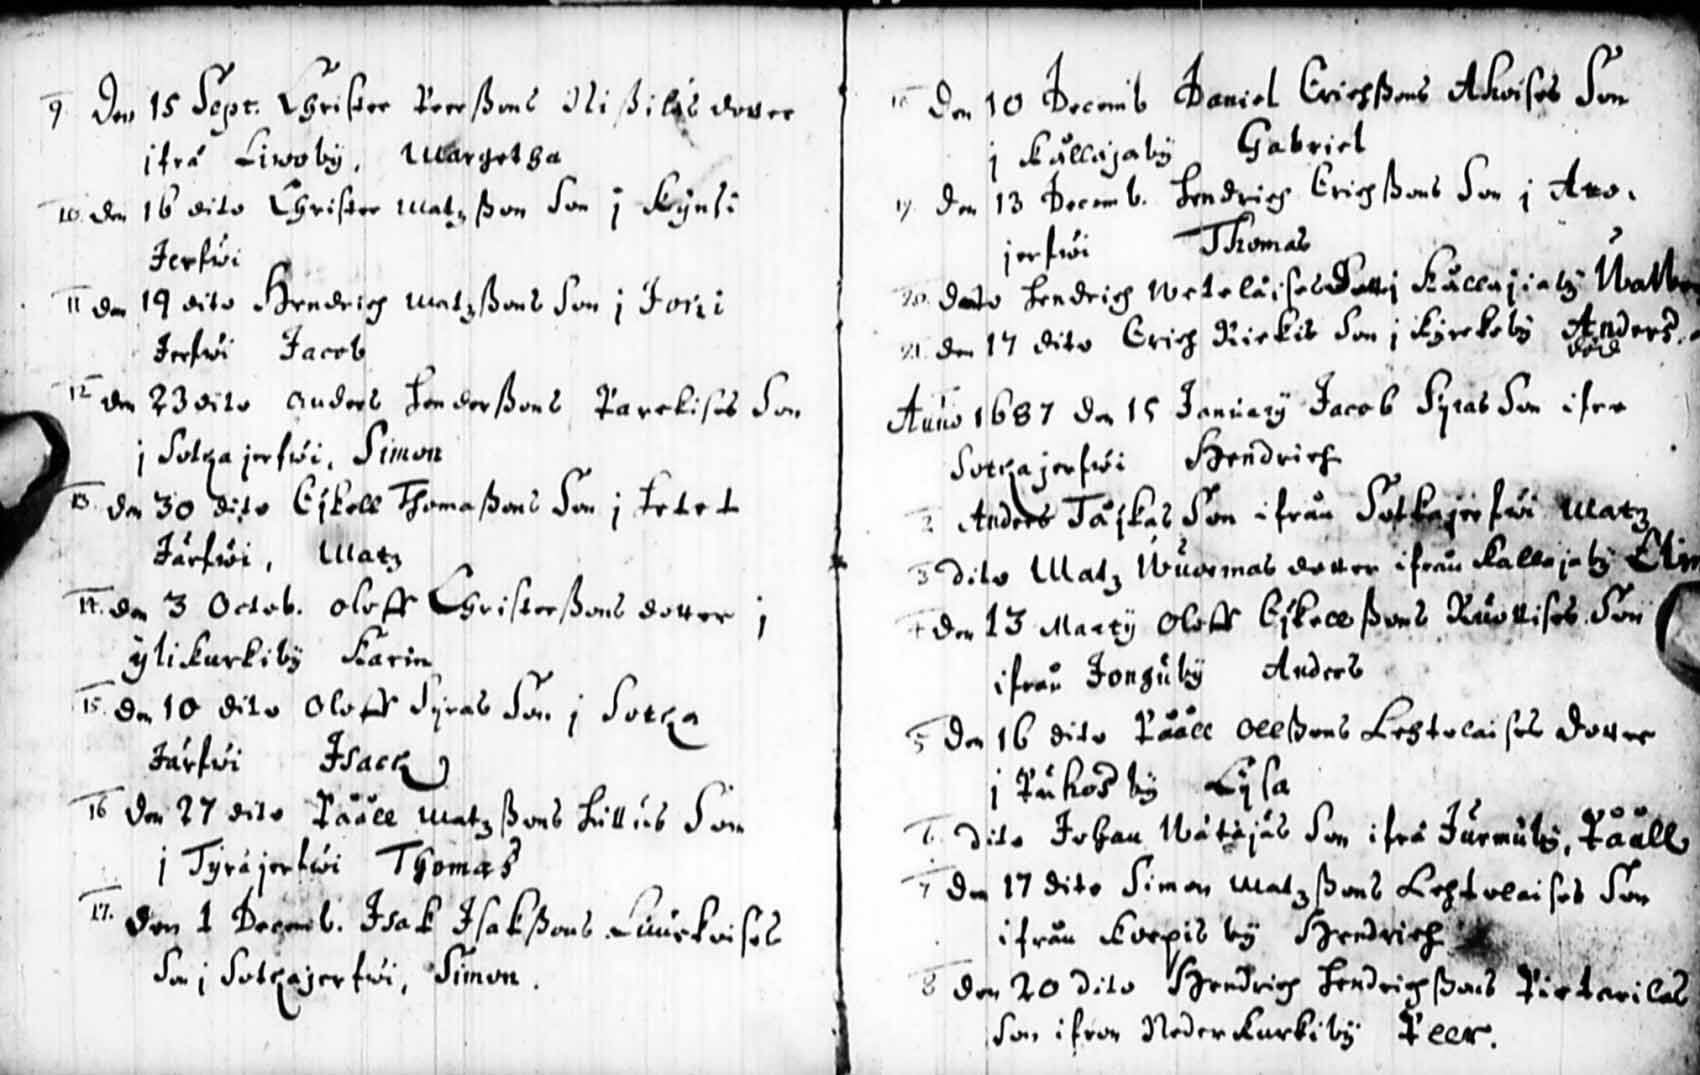 9. Den 15 Sept. Christer Peerßons Nißiläs dotter
ifrå Liwoby, Margetha
10. den 16 dito Christer Matzßon Son j Kynsi
Jerfwi
11 den 19 dito Hendrich Matzßons Son j Joni
Jerfwi Jacob
12 den 23 dito Anders Henderßons Parckises Son
j Sotkajerfwi, Simon
13. den 30 dito Eskell Thomaßons Son j Letet
Järfwi, Matz
14. den 3 Octob. Oloff Christerßons dotter j
ylikurkiby Karin
15. den 10 dito Oloff Syras Son j Sotka
Järfwi Isack
16 den 27 dito Pååll Matzßons Hittus Son
j Tyräjerfwi Thomas
17. den 1 Decemb. Isak Isakßons Luuckoises
Son j Sotkajerfwi, Simon.
18 den 10 Decemb Daniel Erichßons Akoises Son
j Kållajaby Gabriel
19 den 13 Decemb. Hendrich Erichßons Son j Aro.
jerfwi Thomas
20. dito Hendrich Weteläises j Kållajiaby
21. den 17 dito Erich Rickis Son j Kyrckoby Anders.
död
Anno 1687 den 15 January Jacob Syras Son ifrå
Sotkajerfwi Hendrich
2 Anders Täskas Son ifrån Sotkajerfwi Matz
3 dito Matz Wuormas dotter ifrån Kallajaby
4 den 13 Marty Oloff Eskellßons Ruottises Son
ifrån Jonguby Anders
5 den 16 dito Pååll Ollßons Lehtolaises dotter
j Pukosby Lysa
6. dito Johan Wätäjäs Son ifrå Jurmuby, Pååll
7 den 17 dito Simon Matzßons Lehtolaises Son
ifrån Korpisby Hendrich
8 den 20 dito Hendrich Hendrichßons Pietarilas
Son ifron Nederkurkiby Peer.